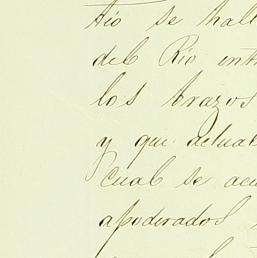 Río se hal
del Río ent
los brazos
y que actua
cual se ac
apoderados